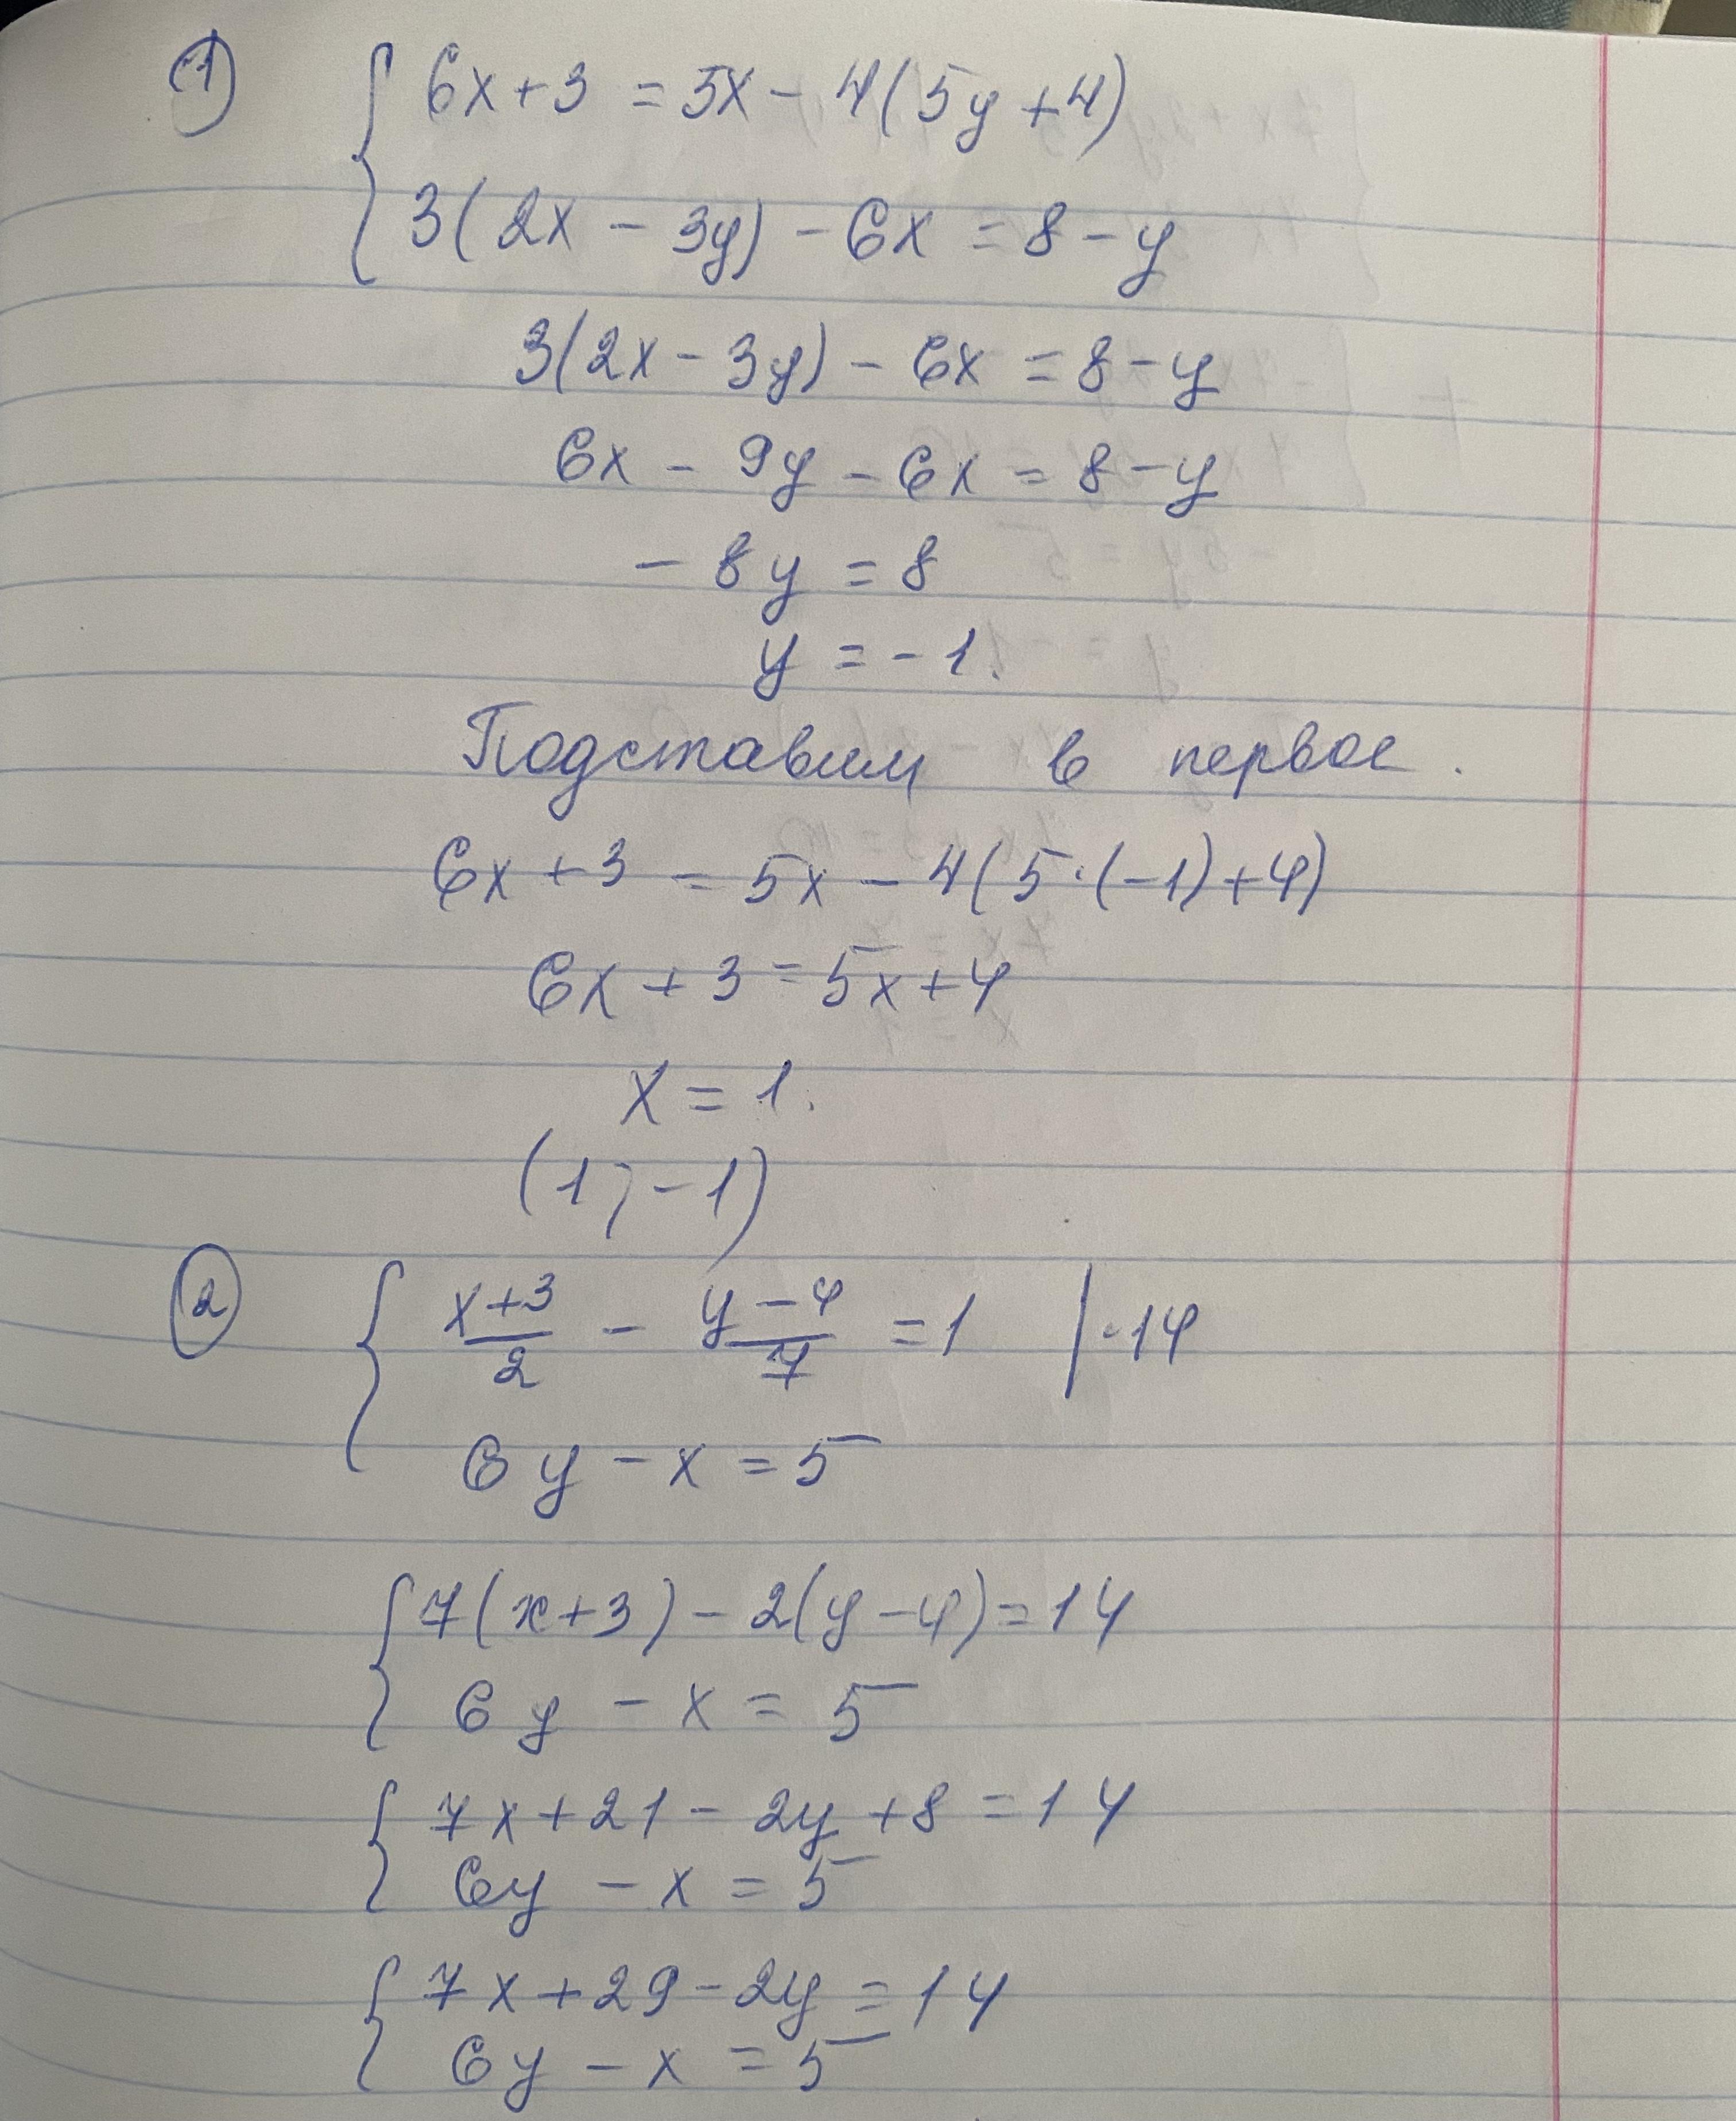 1 { 6x+3 = 5x - 4(5y+4)
3(2x - 3y) - 6x = 8 - y
3(2x - 3y) - 6x = 8 - y
6x - 9y - 6x = 8 - y
- 8y = 8
y = -1.
Подставим в первое.
6x + 3 = 5x - 4(5·(-1)+4)
6x + 3 = 5x + 4
x = 1.
(1; -1)
2 { (x+3)/2 - (y-4)/7 = 1 | ·14
6y - x = 5
{ 7(x+3) - 2(y-4) = 14
6y - x = 5
{ 7x + 21 - 2y + 8 = 14
6y - x = 5
{ 7x + 29 - 2y = 14
6y - x = 5